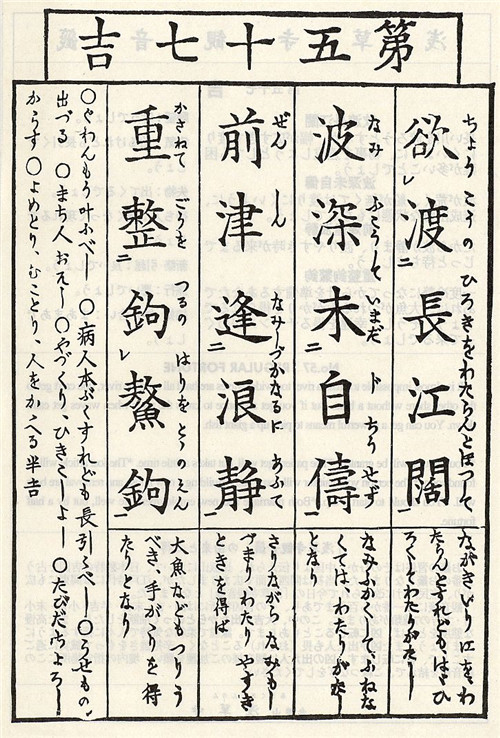 第五十七吉
ちやうこうのひろきをわたらんとほつして
欲レ渡二長江闊一
ながきいり江をわ
たらんとすれども、はゞひ
ろくてわたりがたし
なみふかくしていまだ
波深未二自儔一
なみふかくしてふねな
くては、わたりがたし
となり
ぜんしんなみしづかなるにあふて
前津逢二浪静一
さりながらなみもし
づまり、わたりやすき
ときを得ば
かさねてごうをつるのはりをとゝのえん
重整二鉤レ鰲鉤一
大魚などもつりう
べき、手がゝりを得
たりとなり
〇ぐわんもう叶ふべし 〇病人本ぷくすれども長引くべし 〇うせもの
出づる 〇まち人おそし 〇やづくり、ひきこしよし 〇たびだちよろし
からず 〇よめとり、むことり、人をかゝへる半吉